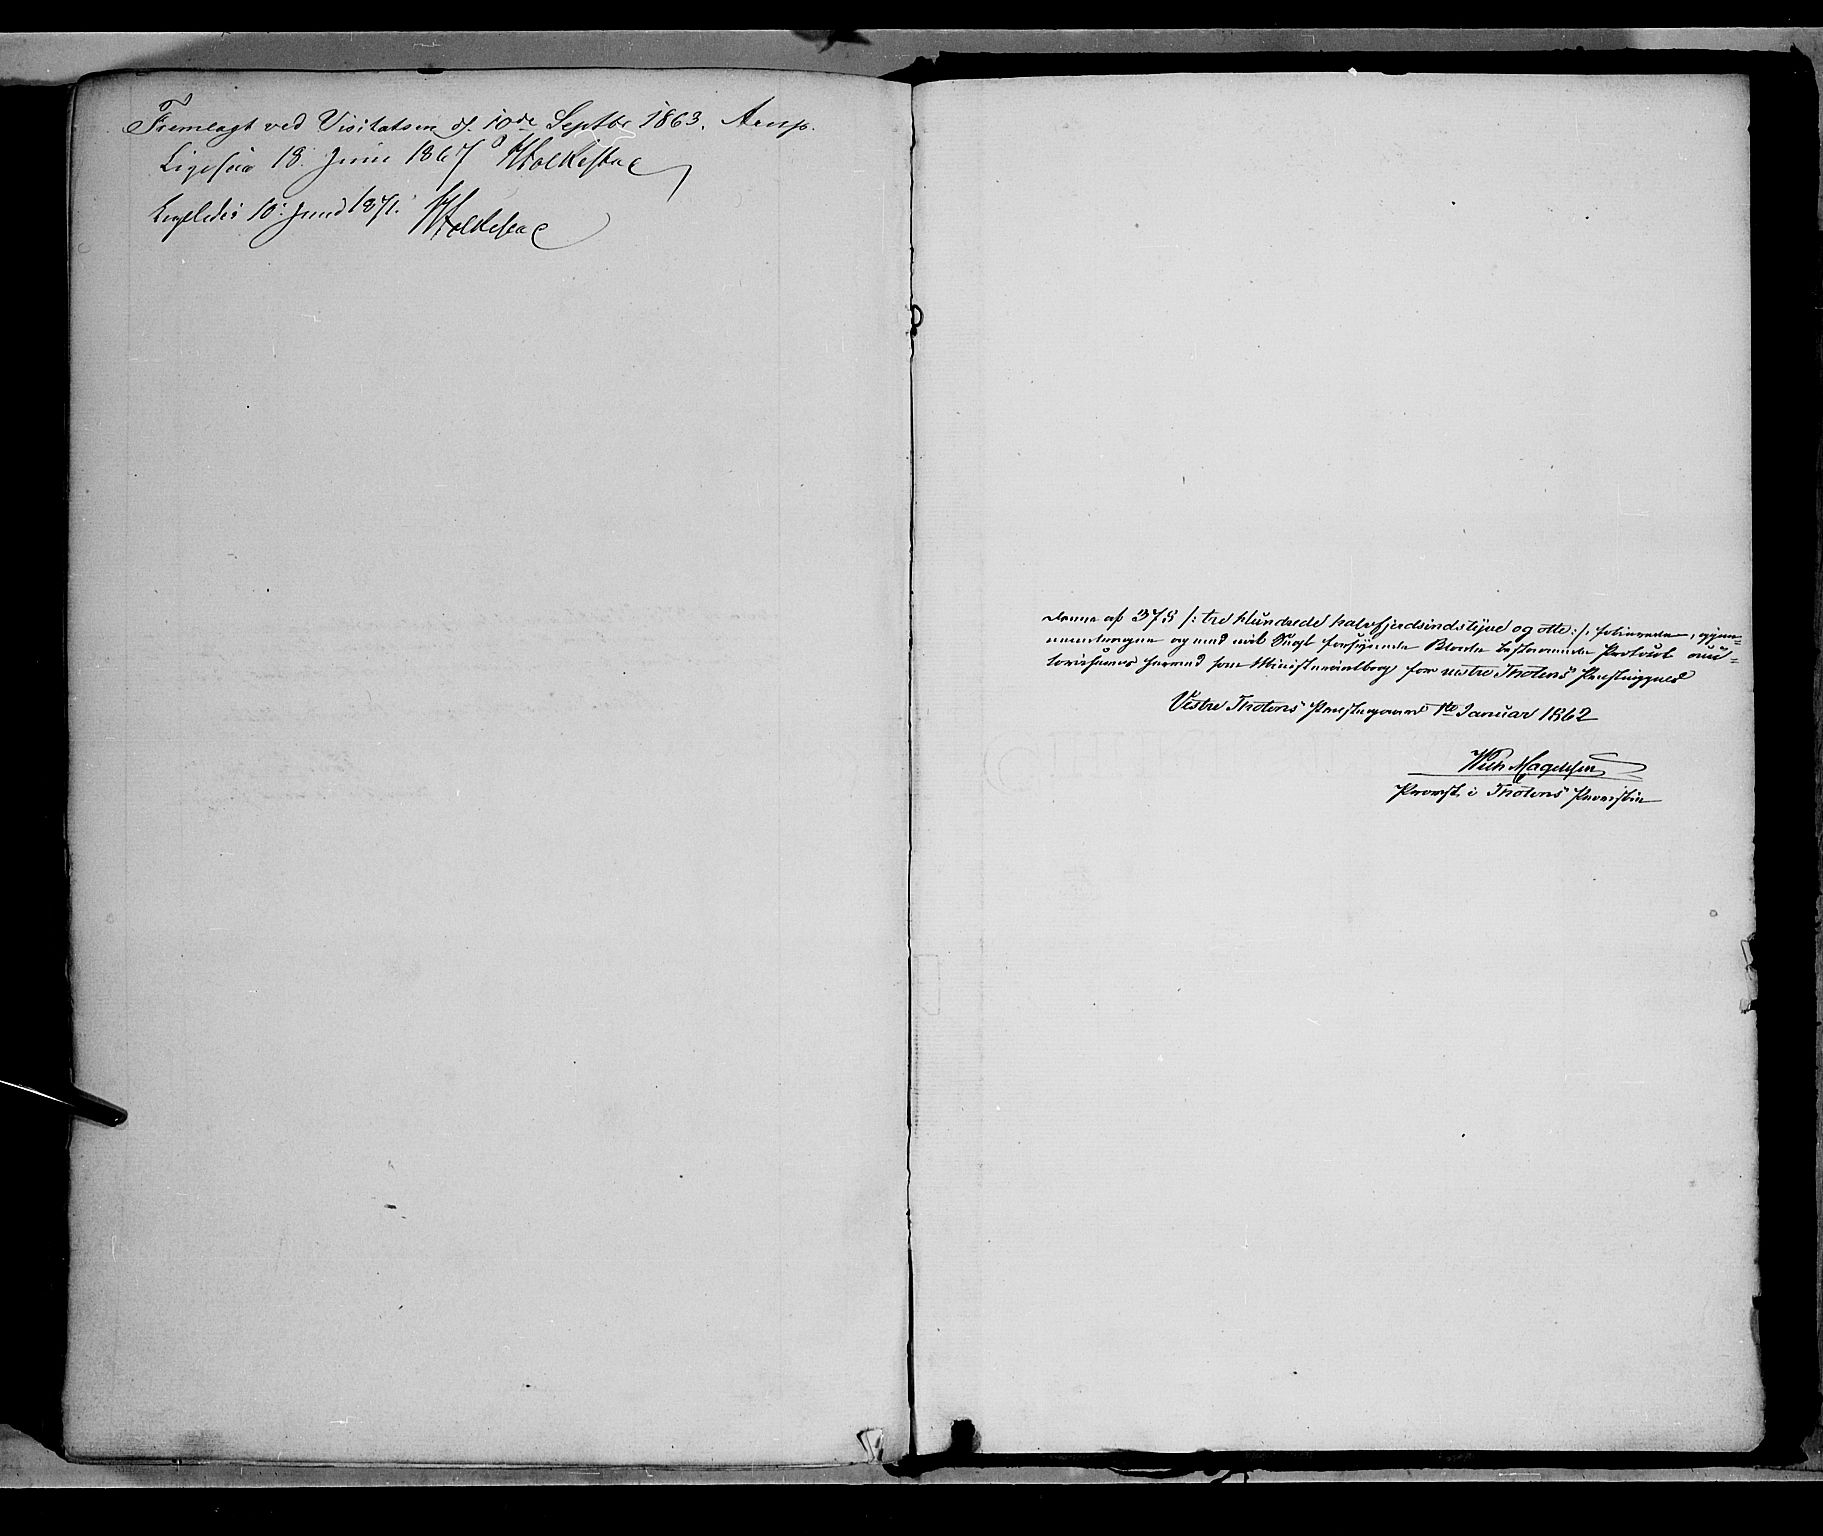 Fremlagt ved Visitatsen d. 10de Septbr 1863. Arup.
Ligesaa 18. Juni 1867 Folkestad
Ligeledes 10. Juni 1871. Folkestad
Denne af 375 /: tre Hundrede halvfjerdsindstyve og otte :/ folierede, igjen-
nemdragne og med mit Segl forsynede Blade bestaaende Protocol auc-
toriseres herved som Ministerialbog for vestre Thotens Præstegjeld
Vestre Thotens Præstegaard 1ste Januar 1862
Wilh Magelssen
Provst i Thotens Provsti